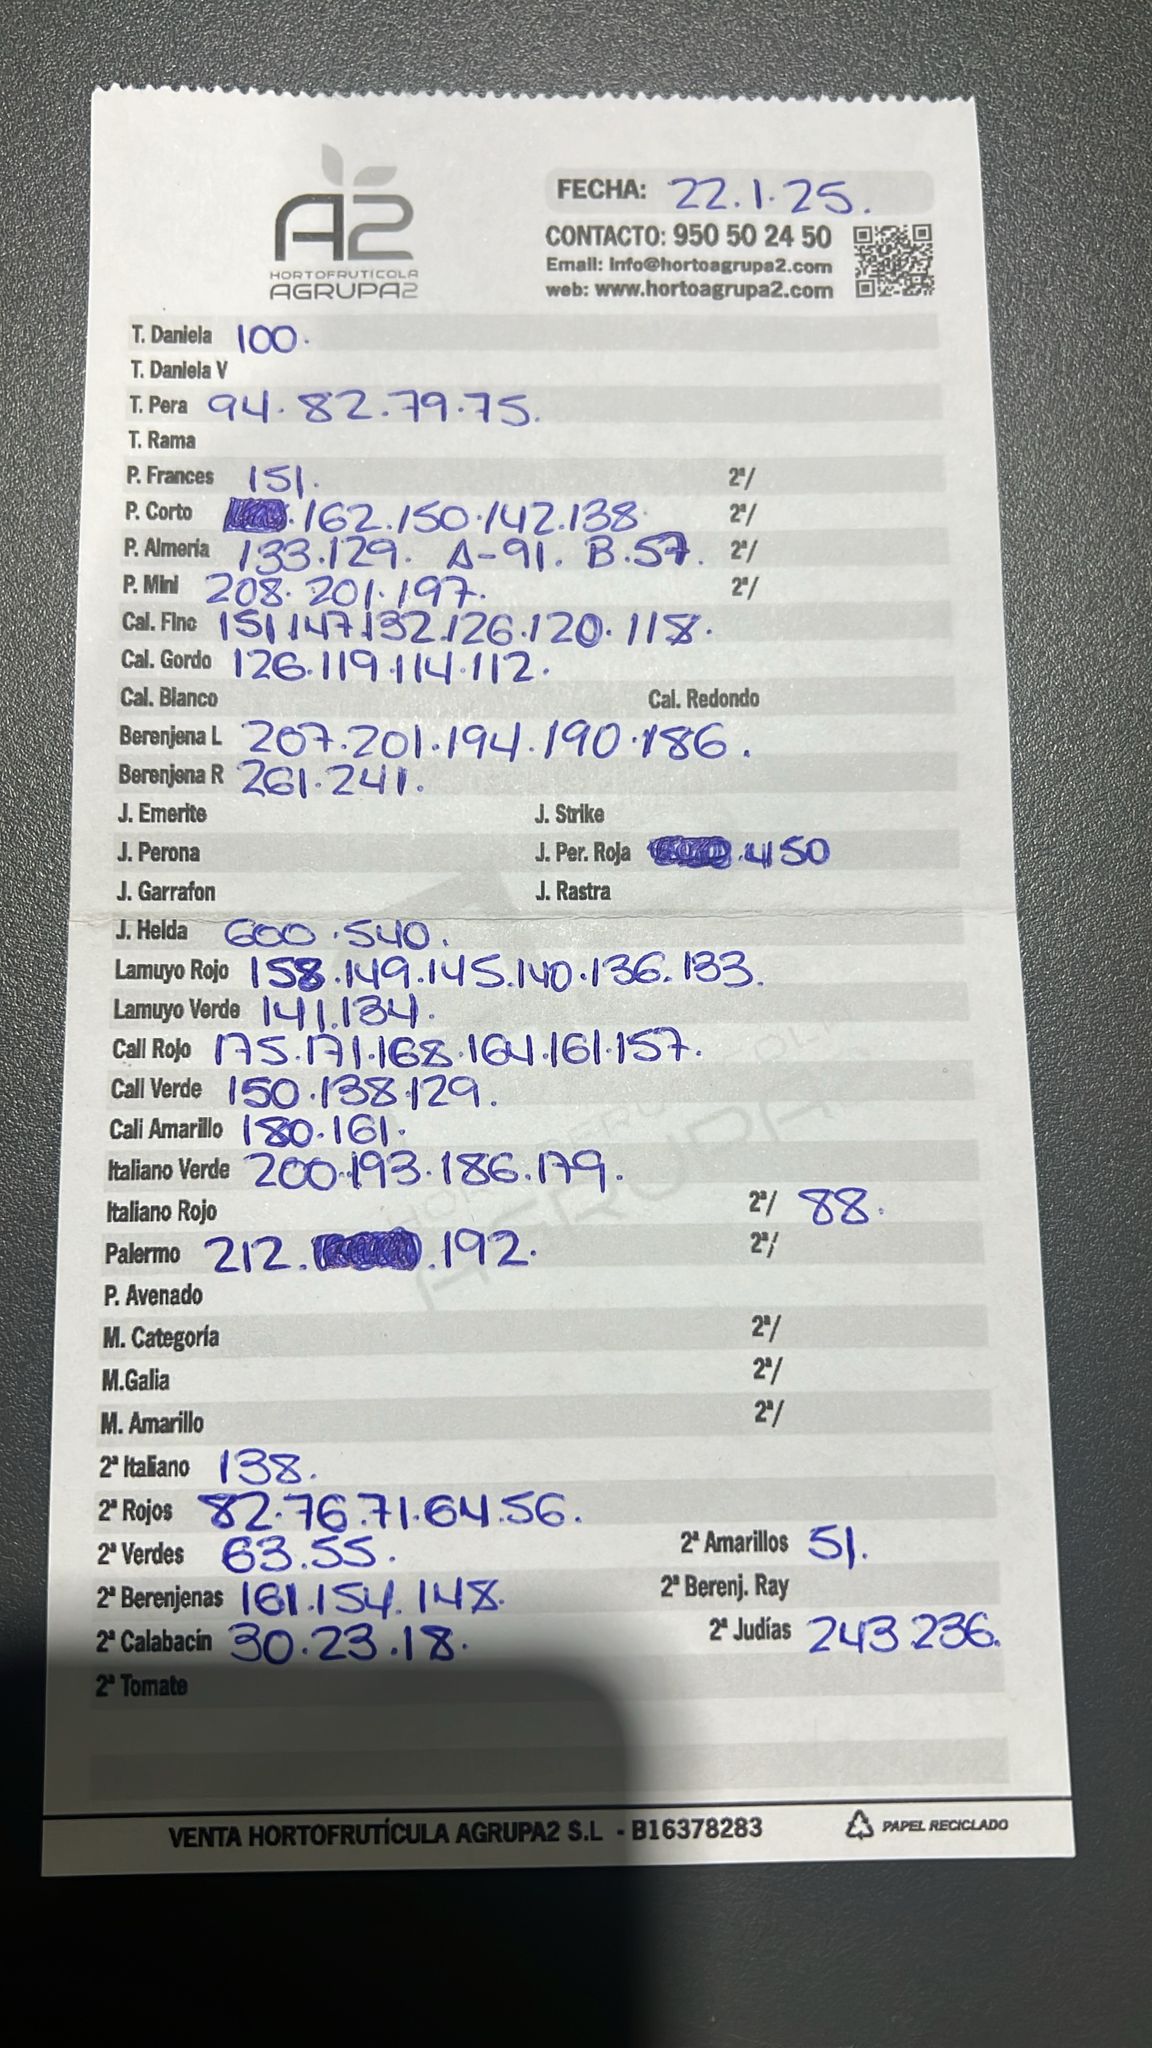 A2
HORTOFRUTÍCOLA
AGRUPA2
FECHA: 22.1.25.
CONTACTO: 950 50 24 50
Email: info@hortoagrupa2.com
web: www.hortoagrupa2.com
T. Daniela 100.
T. Daniela V
T. Pera 94.82.79.75.
T. Rama
P. Frances 151. 2ª/
P. Corto .162.150.142.138. 2ª/
P. Almería 133.129. A-91. B.57. 2ª/
P. Mini 208.201.197. 2ª/
Cal. Fino 151.147.132.126.120.118.
Cal. Gordo 126.119.114.112.
Cal. Blanco Cal. Redondo
Berenjena L 207.201.194.190.186.
Berenjena R 261.241.
J. Emerite J. Strike
J. Perona J. Per. Roja .450
J. Garrafon J. Rastra
J. Helda 600.540.
Lamuyo Rojo 158.149.145.140.136.133.
Lamuyo Verde 141.134.
Cali Rojo 175.171.168.164.161.157.
Cali Verde 150.138.129.
Cali Amarillo 180.161.
Italiano Verde 200.193.186.179.
Italiano Rojo 2ª/ 88.
Palermo 212. .192. 2ª/
P. Avenado
M. Categoría 2ª/
M.Galia 2ª/
M. Amarillo 2ª/
2ª Italiano 138.
2ª Rojos 82.76.71.64.56.
2ª Verdes 63.55. 2ª Amarillos 51.
2ª Berenjenas 161.154.148. 2ª Berenj. Ray
2ª Calabacín 30.23.18. 2ª Judías 243.236.
2ª Tomate
VENTA HORTOFRUTÍCULA AGRUPA2 S.L - B16378283 PAPEL RECICLADO